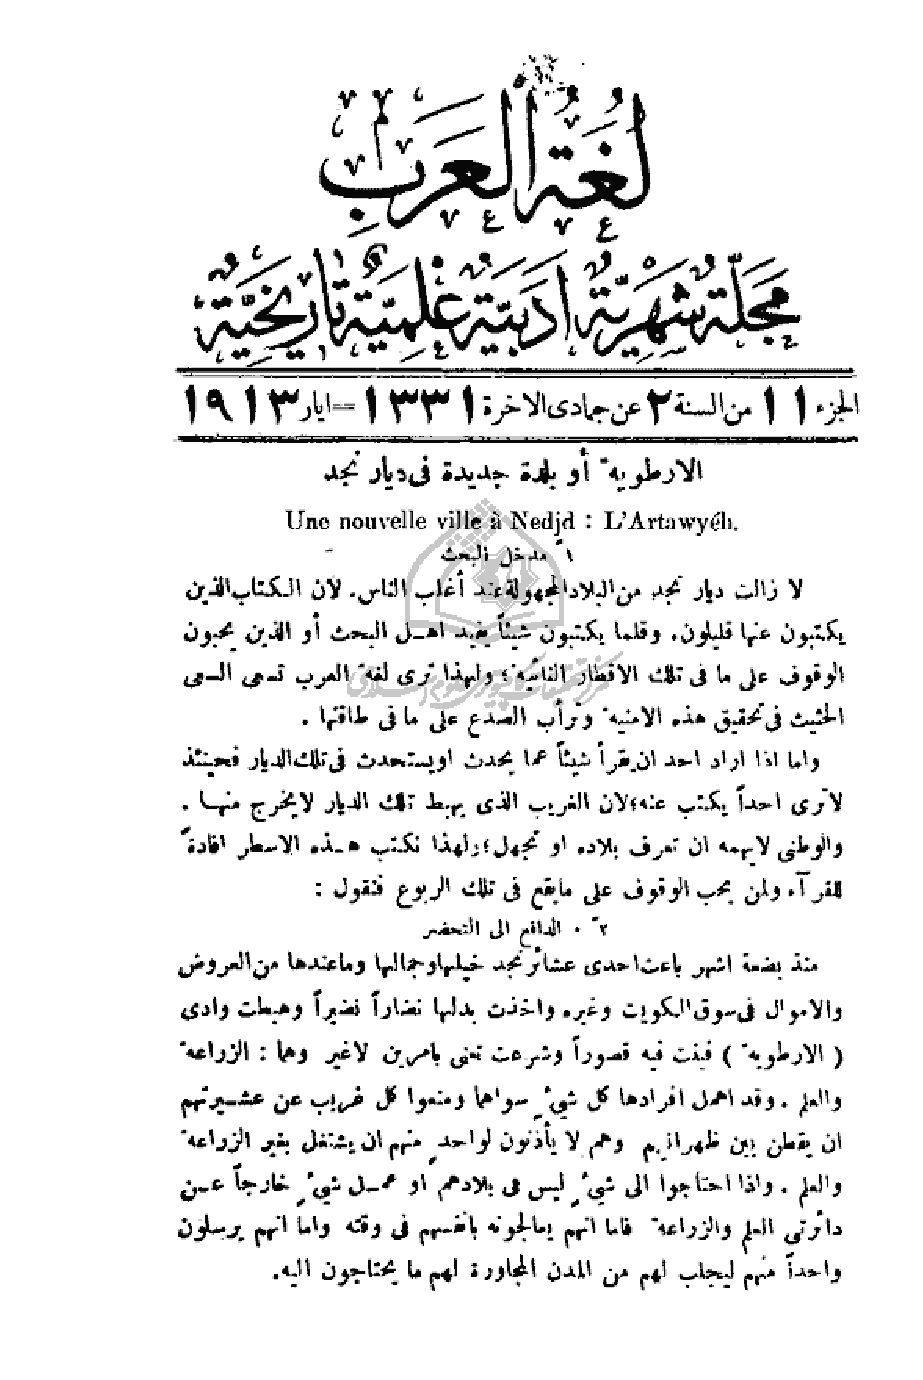 لُغَةُ الْعَرَبِ
مَجَلَّةٌ شَهْرِيَّةٌ أَدَبِيَّةٌ عِلْمِيَّةٌ تَارِيخِيَّةٌ
الجزء ١١ من السنة ٢ عن جمادى الاخرة ١٣٣١ = ايار ١٩١٣
الارطوية أو بلدة جديدة فى ديار نجد
Une nouvelle ville à Nedjd : L'Artawyéh.
١ً مدخل البحث
لا زالت ديار نجد من البلاد المجهولة عند أغلب الناس. لان الكتاب الذين
يكتبون عنها قليلون، وقلما يكتبون شيئاً يفيد اهل البحث أو الذين يحبون
الوقوف على ما فى تلك الاقطار النائية؛ ولهذا ترى لغة العرب تسعى السعى
الحثيث فى تحقيق هذه الامنية وترأب الصدع على ما فى طاقتها .
واما اذا اراد احد ان يقرأ شيئاً عما يحدث او يستحدث فى تلك الديار فحينئذ
لا ترى احداً يكتب عنه؛ لان الغريب الذى يهبط تلك الديار لا يخرج منها .
والوطنى لايهمه ان تعرف بلاده او تجهل؛ ولهذا نكتب هذه الاسطر افادةً
للقرآء ولمن يحب الوقوف على مايقع فى تلك الربوع فنقول :
٢ً . الدافع الى التحضر
منذ بضعة اشهر باعت احدى عشائر نجد خيلها وجمالها وماعندها من العروض
والاموال فى سوق الكويت وغيره واخذت بدلها نضاراً نضيراً وهبطت وادى
( الارطوية ) فبنت فيه قصوراً وشرعت تعنى بامرين لاغير وهما : الزراعة
والعلم . وقد اهمل افرادها كل شيءٍ سواهما ومنعوا كل غريب عن عشيرتهم
ان يقطن بين ظهرانيهم وهم لا يأذنون لواحدٍ منهم ان يشتغل بغير الزراعة
والعلم . واذا احتاجوا الى شيءٍ ليس فى بلادهم او عمل شيءٍ خارجاً عن
دائرتي العلم والزراعة فاما انهم يعالجونه بانفسهم فى وقته واما انهم يرسلون
واحداً منهم ليجلب لهم من المدن المجاورة لهم ما يحتاجون اليه.